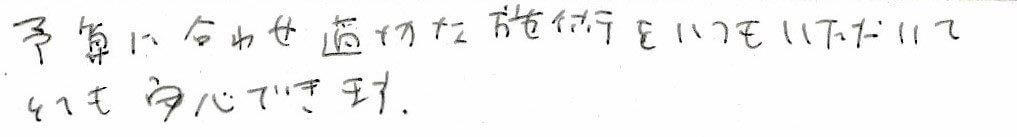 予算に合わせ適切な施術をいつもいただいて
とても安心できます.